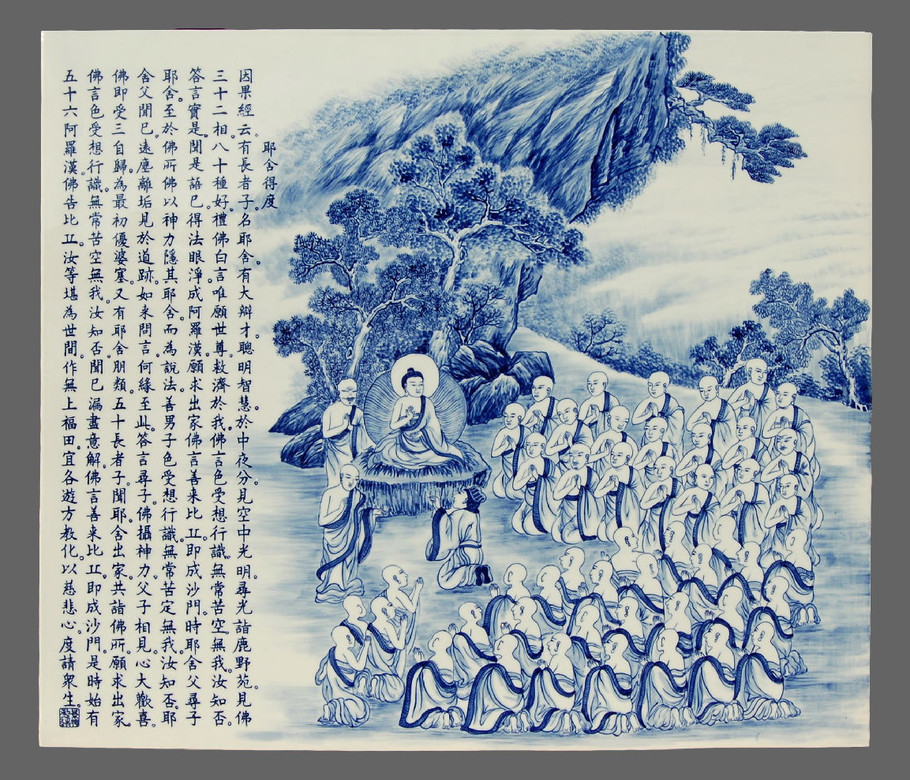 耶舍得度
因果經云。有長者子。名耶舍。有大辯才。聰明智慧。於中夜分。見空中光明。尋光詣鹿野苑。見佛
三十二相。八十種好。禮佛白言。唯願世尊。救濟於我。佛言。色受想行識。無常苦空無我。汝知否。
答言實是。聞是語已。得法眼淨。成阿羅漢。願求出家。佛言善來比丘。即成沙門。時耶舍父。尋子
耶舍。至於佛所。佛以神力。隱其耶舍。而為說法。善男子。色受想行識。無常苦定無我。汝知否。耶
舍父聞已。遠塵離垢。見於道跡。如來問言。何緣至此。答言尋子。佛攝神力。父子相見。心大歡喜。
佛即受三自歸。為最初優婆塞。又有耶舍朋類。五十長者子。聞耶舍出家。共詣佛所。願求出家。
佛言色受想行識。無常苦空無我。汝知否。聞已漏盡意解。佛言善來比丘。即成沙門。是時始有
五十六阿羅漢。佛告比丘。汝等堪為世間。作無上福田。宜各遊方教化。以慈悲心。度諸眾生。